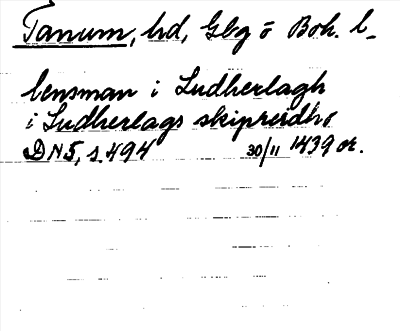 Tanum, hd, Gbg o Boh. l_
lensman i Ludherlagh
i Ludherlags skipreidho
DN5, s. 494 30/11 1439 or.